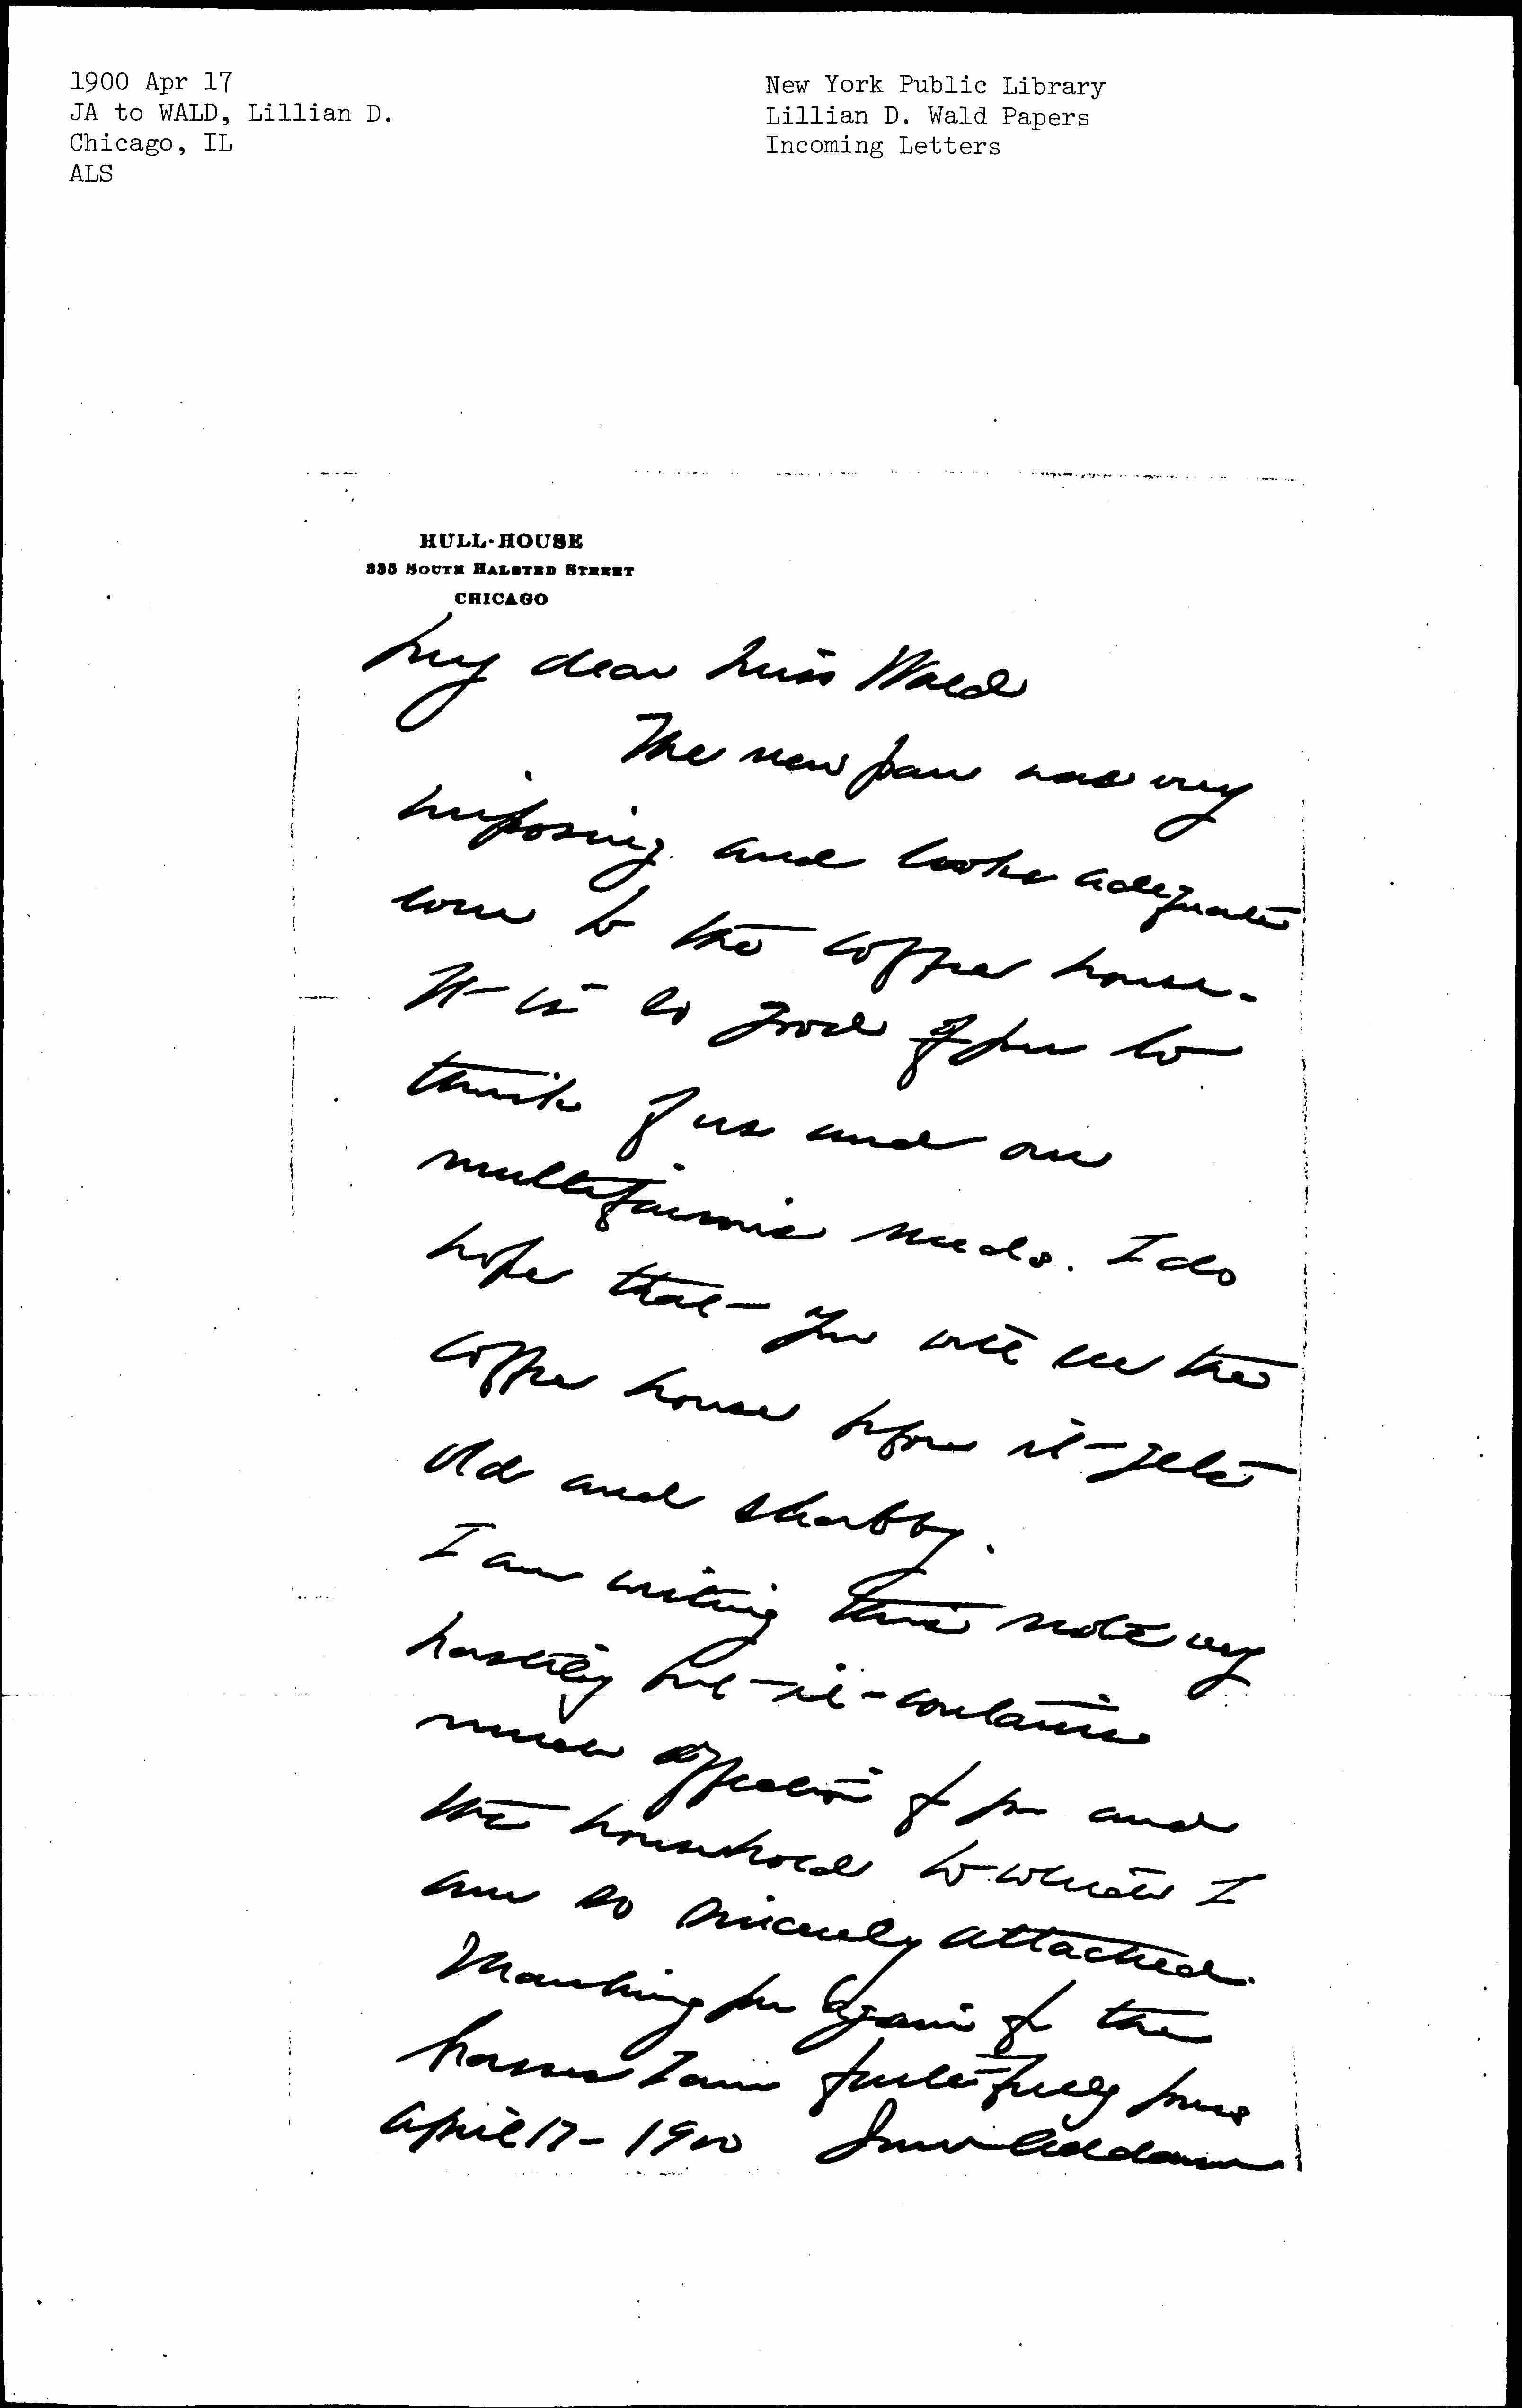 1900 Apr 17
JA to WALD, Lillian D.
Chicago, IL
ALS
New York Public Library
Lillian D. Wald Papers
Incoming Letters
HULL-HOUSE
335 SOUTH HALSTED STREET
CHICAGO
My dear Miss Wald
The new pan was very
imposing and looks adequate
to the coffee house.
It is so good of you to
think of us and our
multifarious needs. I do
hope that you will see the
coffee house before it gets
old and shabby.
I am writing this note very
hastily but it contains
much affection for you and
the household to which I
am so sincerely attached.
Thanking you again for the
I am faithfully yours
April 17 - 1900 Jane Addams